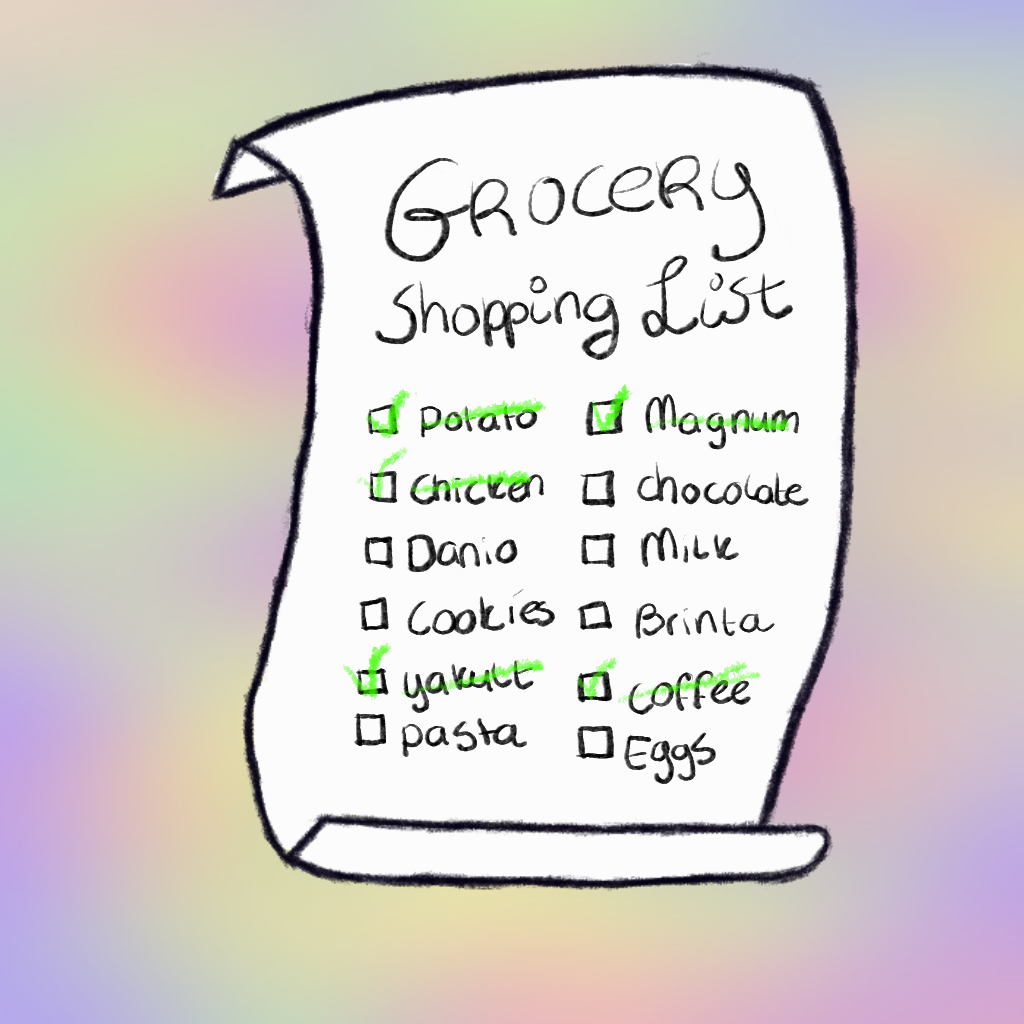 Grocery
Shopping List
Potato
Chicken
Danio
Cookies
yakult
pasta
Magnum
chocolate
Milk
Brinta
coffee
Eggs